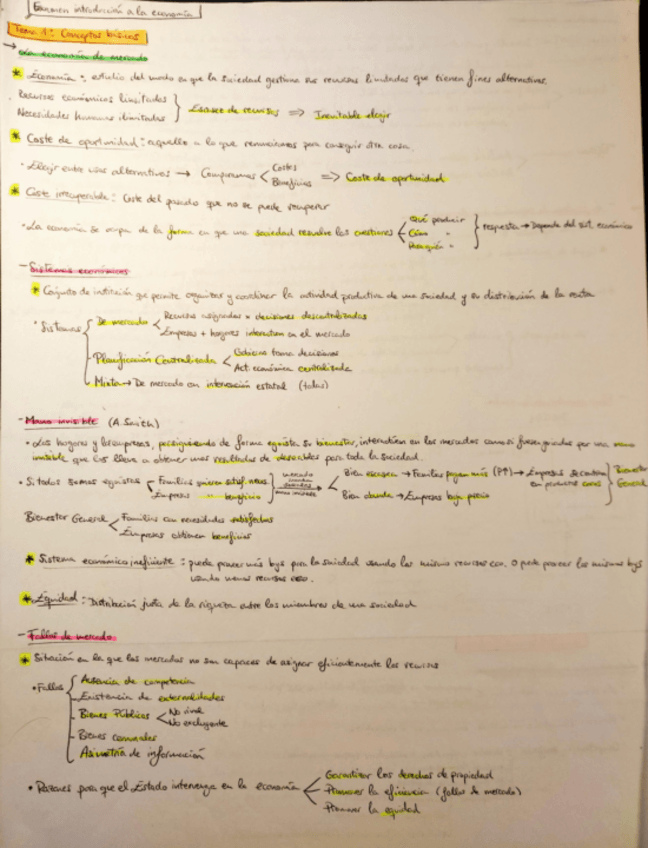 Examen introducción a la economía
Tema 1: Conceptos básicos
→ La economía de mercado
* Economía: estudio del modo en que la sociedad gestiona sus recursos limitados que tienen fines alternativos.
· Recursos económicos limitados
Necesidades humanas ilimitadas } Escasez de recursos ⇒ Inevitable elegir
* Coste de oportunidad: aquello a lo que renunciamos para conseguir otra cosa.
· Elegir entre usos alternativos → Comparamos < Costes
Beneficios ⇒ Coste de oportunidad
* Coste irrecuperable: Coste del pasado que no se puede recuperar
· La economía se ocupa de la forma en que una sociedad resuelve las cuestiones < Qué producir
Cómo "
Para quién " } respuesta → Depende del sist. económico
- Sistemas económicos
* Conjunto de institución que permite organizar y coordinar la actividad productiva de una sociedad y su distribución de la renta
· Sistemas { De mercado < Recursos asignados x decisiones descentralizadas
Empresas + hogares interactúan en el mercado
- Planificación Centralizada < Gobierno toma decisiones
Act. económica centralizada
- Mixta → De mercado con intervención estatal (todas)
- Mano invisible (A. Smith)
· Los hogares y las empresas, persiguiendo de forma egoísta su bienestar, interactúan en los mercados como si fuesen guiados por una mano
invisible que los lleva a obtener unos resultados deseables para toda la sociedad.
· Si todos somos egoístas < Familias quieren satisf. neces.
Empresas " beneficio } mercado
mano invisible → < Bien escasea → Familias pagan más (P↑) → Empresas se centran
en productos caros
Bien abunda → Empresas bajan precio } Bienestar
General
Bienestar General < Familias con necesidades satisfechas
Empresas obtienen beneficios
* Sistema económico ineficiente: puede proveer más bys para la sociedad usando los mismo recursos eco. O puede proveer los mismos bys
usando menos recursos eco.
* Equidad: Distribución justa de la riqueza entre los miembros de una sociedad
- Fallos de mercado
* Situación en la que los mercados no son capaces de asignar eficientemente los recursos
· Fallos { Ausencia de competencia
- Existencia de externalidades
- Bienes Públicos < No rival
No excluyente
- Bienes comunales
- Asimetría de información
· Razones para que el Estado intervenga en la economía < Garantizar los derechos de propiedad
Promover la eficiencia (fallos de mercado)
Promover la equidad